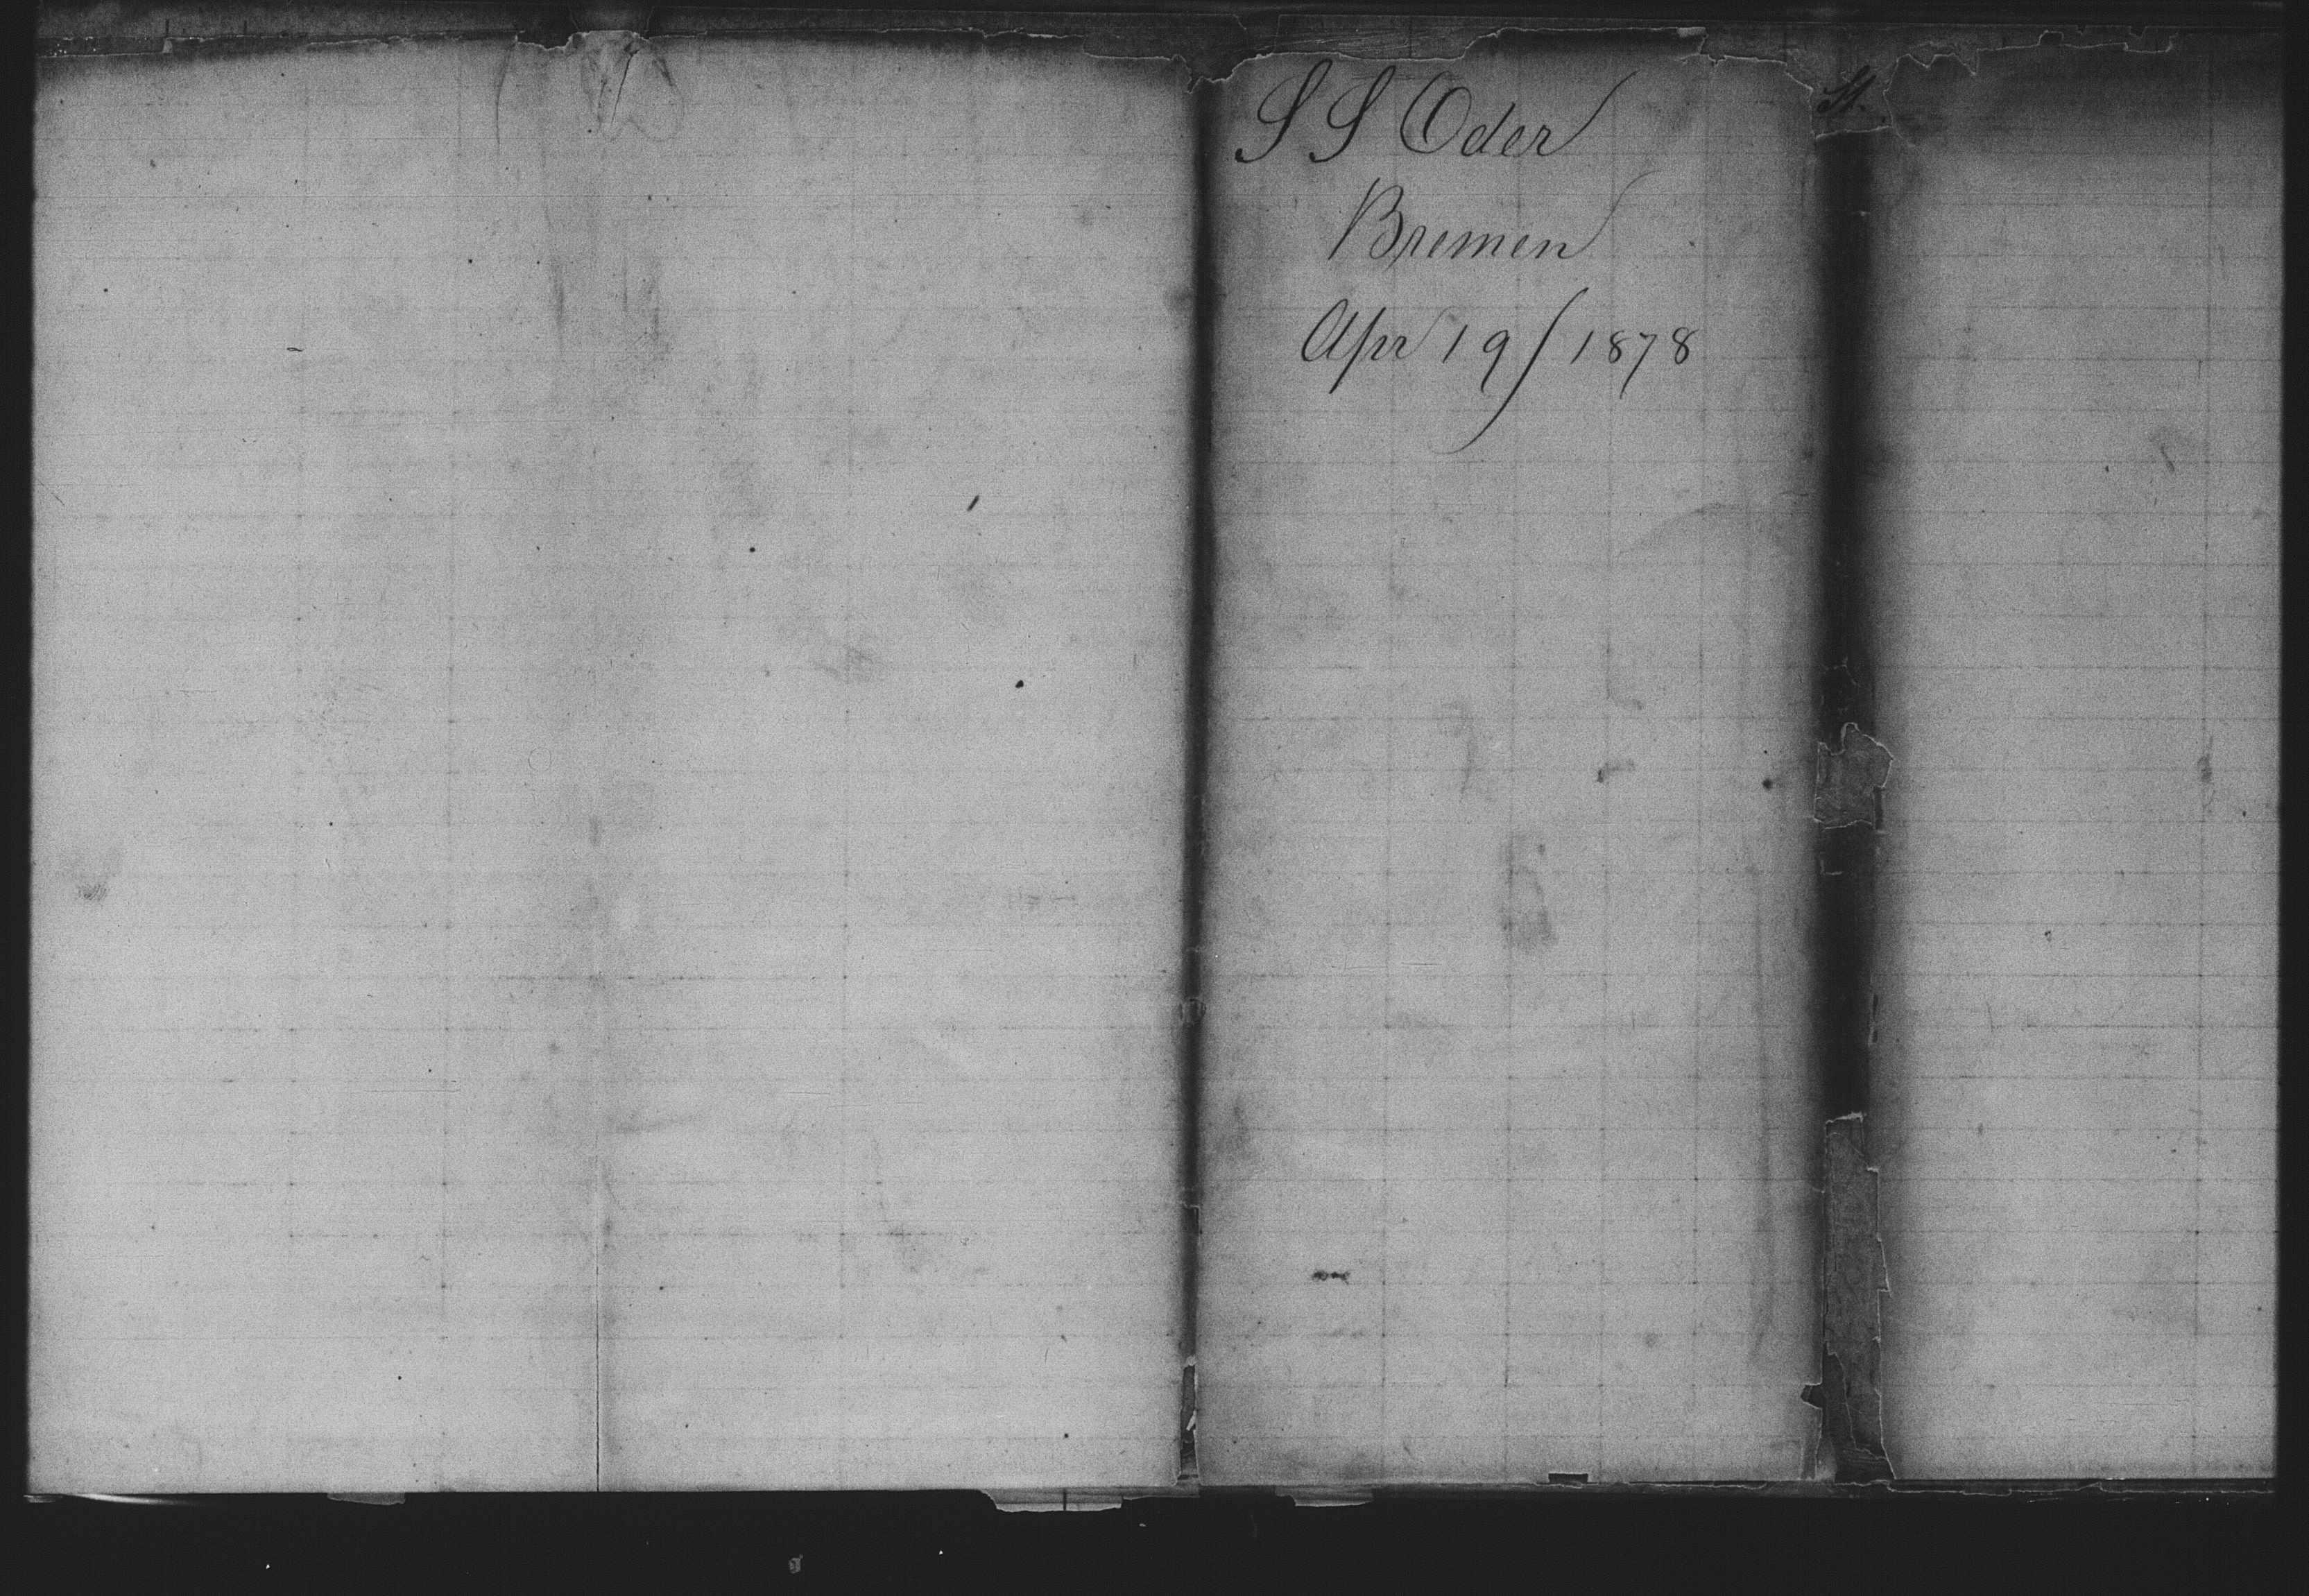 S S Oder
Bremen
Apr 19/1878